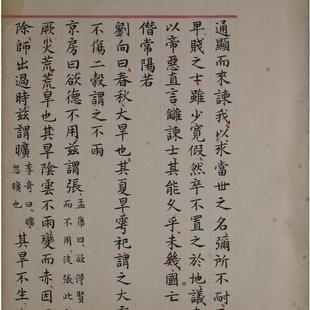 通顯而來諫我以求當世之名彌所不耐
卑賤之士雖少寬假然卒不置之於地議
以帝惡直言讎諫士其能久乎未幾國亡
僭常陽若
劉向曰春秋大旱也其夏旱雩祀謂之大
不傷二穀謂之不雨
京房曰欲德不用茲謂張孟康曰欲得賢
而不用徒張此
厥災荒荒旱也其旱陰雲不雨變而赤因
除師出過時茲謂曠李奇曰曠
怨曠也其旱不生